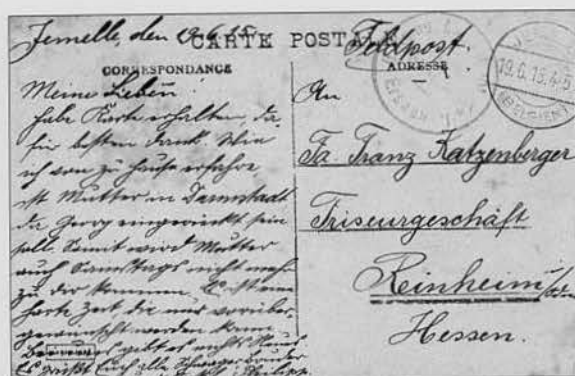 Jemelle, den 19.6.15.
CARTE POSTALE
Feldpost.
CORRESPONDANCE
Meine Lieben!
habe Karte erhalten, da-
für besten Dank. Wie
ich von zu Hause erfahre,
ist Mutter in Darmstadt
da Georg eingerückt sein
soll. Somit wird Mutter
auch Samstags nicht mehr
zu dir kommen. Es ist eine
harte Zeit, die nur vorüber
gewünscht werden kann.
gibt es nichts Neues
Es grüßt Euch alle Schwager Bruder
Philipp.
ADRESSE
An
Fa. Franz Katzenberger
Friseurgeschäft
Reinheim
Hessen.
19.6.15.
(BELGIEN)